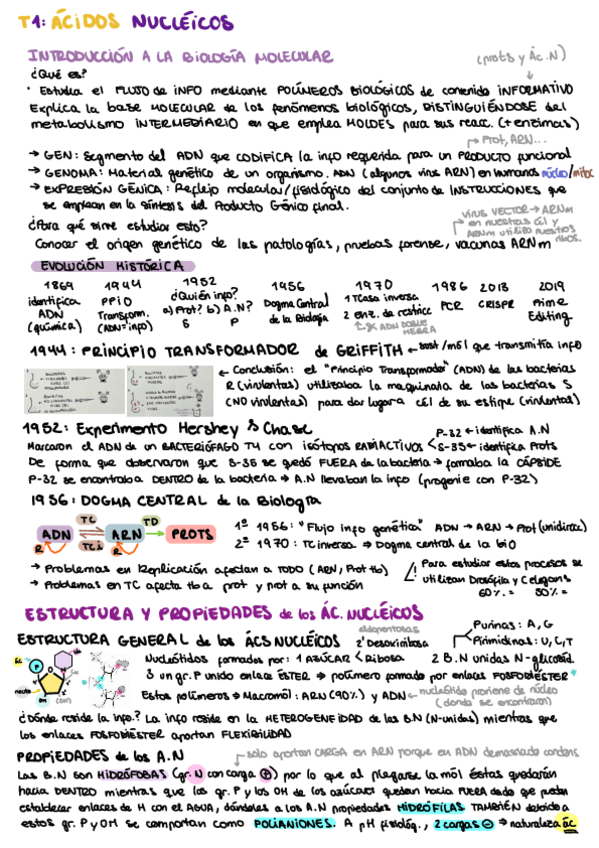 T1: ÁCIDOS NUCLÉICOS
INTRODUCCIÓN A LA BIOLOGÍA MOLECULAR
(prots y Ác.N)
¿Qué es?
· Estudia el FLUJO de INFO mediante POLÍMEROS BIOLÓGICOS de contenido INFORMATIVO
Explica la base MOLECULAR de los fenómenos biológicos, DISTINGUIÉNDOSE del
metabolismo INTERMEDIARIO en que emplea MOLDES para sus reacc. (+enzimas)
Prot, ARN...
→ GEN: Segmento del ADN que CODIFICA la info requerida para un PRODUCTO funcional
→ GENOMA: Material genético de un organismo. ADN (algunos virus ARN) en humanos núcleo/mitoc
→ EXPRESIÓN GÉNICA: Reflejo molecular/fisiológico del conjunto de INSTRUCCIONES que
se emplean en la síntesis del Producto Génico final.
virus VECTOR → ARNm
¿Para qué sirve estudiar esto?
en nuestras cél y
ARNm utiliza nuestros
ribos.
Conocer el origen genético de las patologías, pruebas forense, vacunas ARNm
EVOLUCIÓN HISTÓRICA
1869 1944 1952 1956 1970 1986 2013 2019
identifica PPIO ¿Quién info? Dogma Central 1 TCasa inversa PCR CRISPR Prime
ADN Transform. a) Prot? b) A.N? de la Biología 2 enz. de restricc Editing
(química) (ADN=info) S P ADN DOBLE
HEBRA
1944: PRINCIPIO TRANSFORMADOR de GRIFFITH ← sust/mól que transmitía info
← Conclusión: el "Principio Transformador" (ADN) de las bacterias
R (virulentas) utilizaba la maquinaria de las bacterias S
(NO virulentas) para dar lugar a cél de su estirpe (virulenta)
1952: Experimento Hershey & Chase
P-32 ← identifica A.N
Marcaron el ADN de un BACTERIÓFAGO T4 con isótopos RADIACTIVOS < S-35 ← identifica Prots
De forma que observaron que S-35 se quedó FUERA de la bacteria → formaba la CÁPSIDE
P-32 se encontraba DENTRO de la bacteria → A.N llevaban la info (progenie con P-32)
1956: DOGMA CENTRAL de la Biología
TC TD
ADN ARN PROTS
R TCi R
1º 1956: "Flujo info genética" ADN → ARN → Prot (unidirecc)
2º 1970: TC inversa → Dogma central de la bio
→ Problemas en Replicación afectan a TODO (ARN, Prot tb)
→ Problemas en TC afecta tb a prot y prot a su función
! Para estudiar estos procesos se
utilizan Drosófila y C elegans
60% = 50% =
ESTRUCTURA Y PROPIEDADES de los ÁC. NUCLÉICOS
ESTRUCTURA GENERAL de los ÁCS NUCLÉICOS
aldopentosas
2' Desoxirribosa
Purinas: A, G
Pirimidinas: U, C, T
Nucleótidos formados por: 1 AZÚCAR < Ribosa 2 B.N unidas N-glicosíd.
3 un gr. P unido enlace ÉSTER → polímero formado por enlaces FOSFODIÉSTER
Estos polímeros → Macromól: ARN (90%) y ADN ← nucleótido proviene de núcleo
(donde se encontraron)
¿Dónde reside la info.? La info reside en la HETEROGENEIDAD de las B.N (N-unidas) mientras que
los enlaces FOSFODIÉSTER aportan FLEXIBILIDAD
PROPIEDADES de los A.N
solo aportan CARGA en ARN porque en ADN demasiado condens
Las B.N son HIDRÓFOBAS (gr. N con carga +) por lo que al plegarse la mól éstas quedarán
hacia DENTRO mientras que los gr. P y los OH de los azúcares quedan hacia FUERA dado que pueden
establecer enlaces de H con el AGUA, dándoles a los A.N propiedades HIDRÓFILAS TAMBIÉN debido a
estos gr. P y OH se comportan como POLIANIONES. A pH fisiológ., 2 cargas - → naturaleza ác